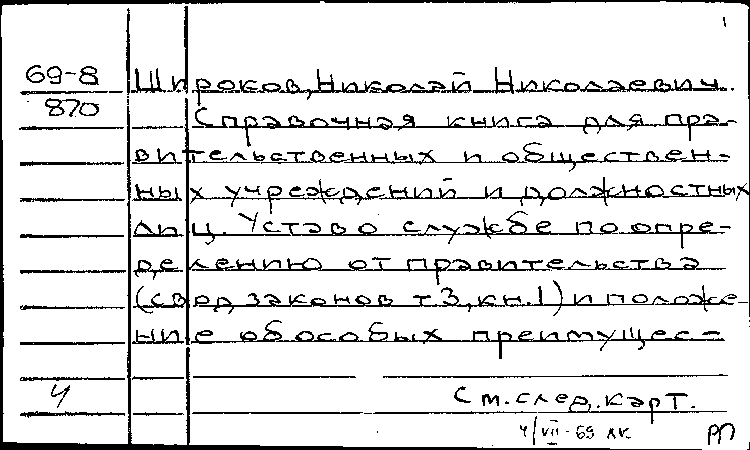 1
69-8 Широков, Николай Николаевич.
870 Справочная книга для пра-
вительственных и обществен-
ных учреждений и должностных
лиц. Устав о службе по опре-
делению от правительства
(свод законов т.3, кн.1) и положе-
ние об особых преимущес-
Ч См. след. карт.
4/VII-69 ЛК РП